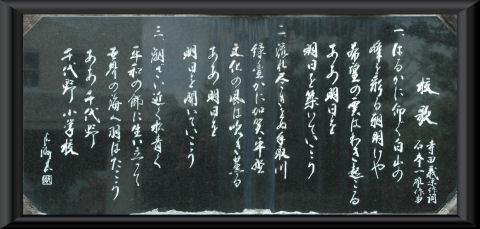 校歌
一 はるかに仰ぐ白山の
峰に
朝明けや
希望の雲はわき起こる
ああ明日を
明日を築いていこう
二 流れ尽きせぬ手取川
緑豊かに加賀平野
文化の風は吹き
ああ明日を
明日を開いていこう
三 潮さい近く
平和の
に生い立ちて
世界の海へ羽ばたこう
ああ千代野
千代野小学校